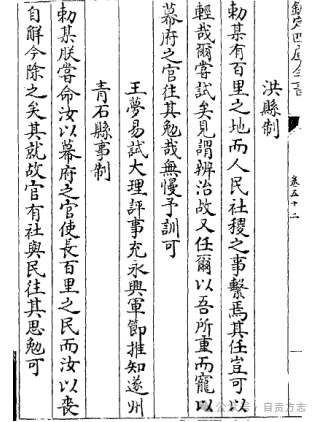 欽定四庫全書
卷五十二
洪縣制
勅某有百里之地而人民社稷之事繫焉其任豈可以
輕哉爾嘗試矣見謂辨治故又任爾以吾所重而寵以
幕府之官往其勉哉無慢予訓可
王夢易試大理評事充永興軍節推知遂州
青石縣事制
勅某朕嘗命汝以幕府之官使長百里之民而汝以喪
自解今除之矣其就故官有社與民往其思勉可
公众号·自贡方志